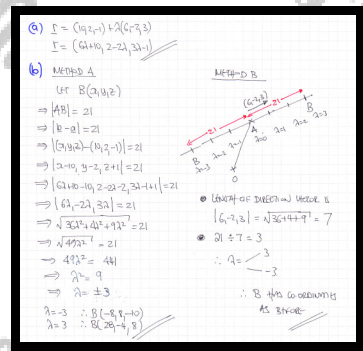 (a) r = (10,2,-1) + λ(6,-2,3)
r = (6λ+10, 2-2λ, 3λ-1)
(b) METHOD A
LET B(x,y,z)
⇒ |AB| = 21
⇒ |b-a| = 21
⇒ |(x,y,z)-(10,2,-1)| = 21
⇒ |x-10, y-2, z+1| = 21
⇒ |6λ+10-10, 2-2λ-2, 3λ-1+1| = 21
⇒ |6λ, -2λ, 3λ| = 21
⇒ √36λ²+4λ²+9λ² = 21
⇒ √49λ² = 21
⇒ 49λ² = 441
⇒ λ² = 9
⇒ λ = ±3
λ=-3 ∴ B(-8,8,-10)
λ=3 ∴ B(28,-4,8)
METHOD B
(6,-2,3)
21
21
B
λ=3
λ=2
λ=1
A
λ=0
λ=-1
λ=-2
λ=-3
B
O
• LENGTH OF DIRECTION VECTOR IS
|6,-2,3| = √36+4+9 = 7
• 21 ÷ 7 = 3
∴ λ = 3
-3
∴ B HAS CO ORDINATES
AS BEFORE